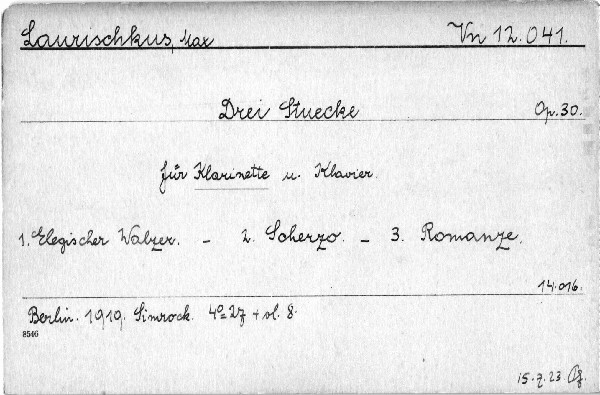 Laurischkus, Max Vn 12.041.
Drei Stuecke Op. 30.
für Klarinette u. Klavier.
1. Elegischer Walzer. – 2. Scherzo. – 3. Romanze.
14.016.
Berlin. 1919. Simrock. 4° 27 + vl. 8.
8546
15.7.23